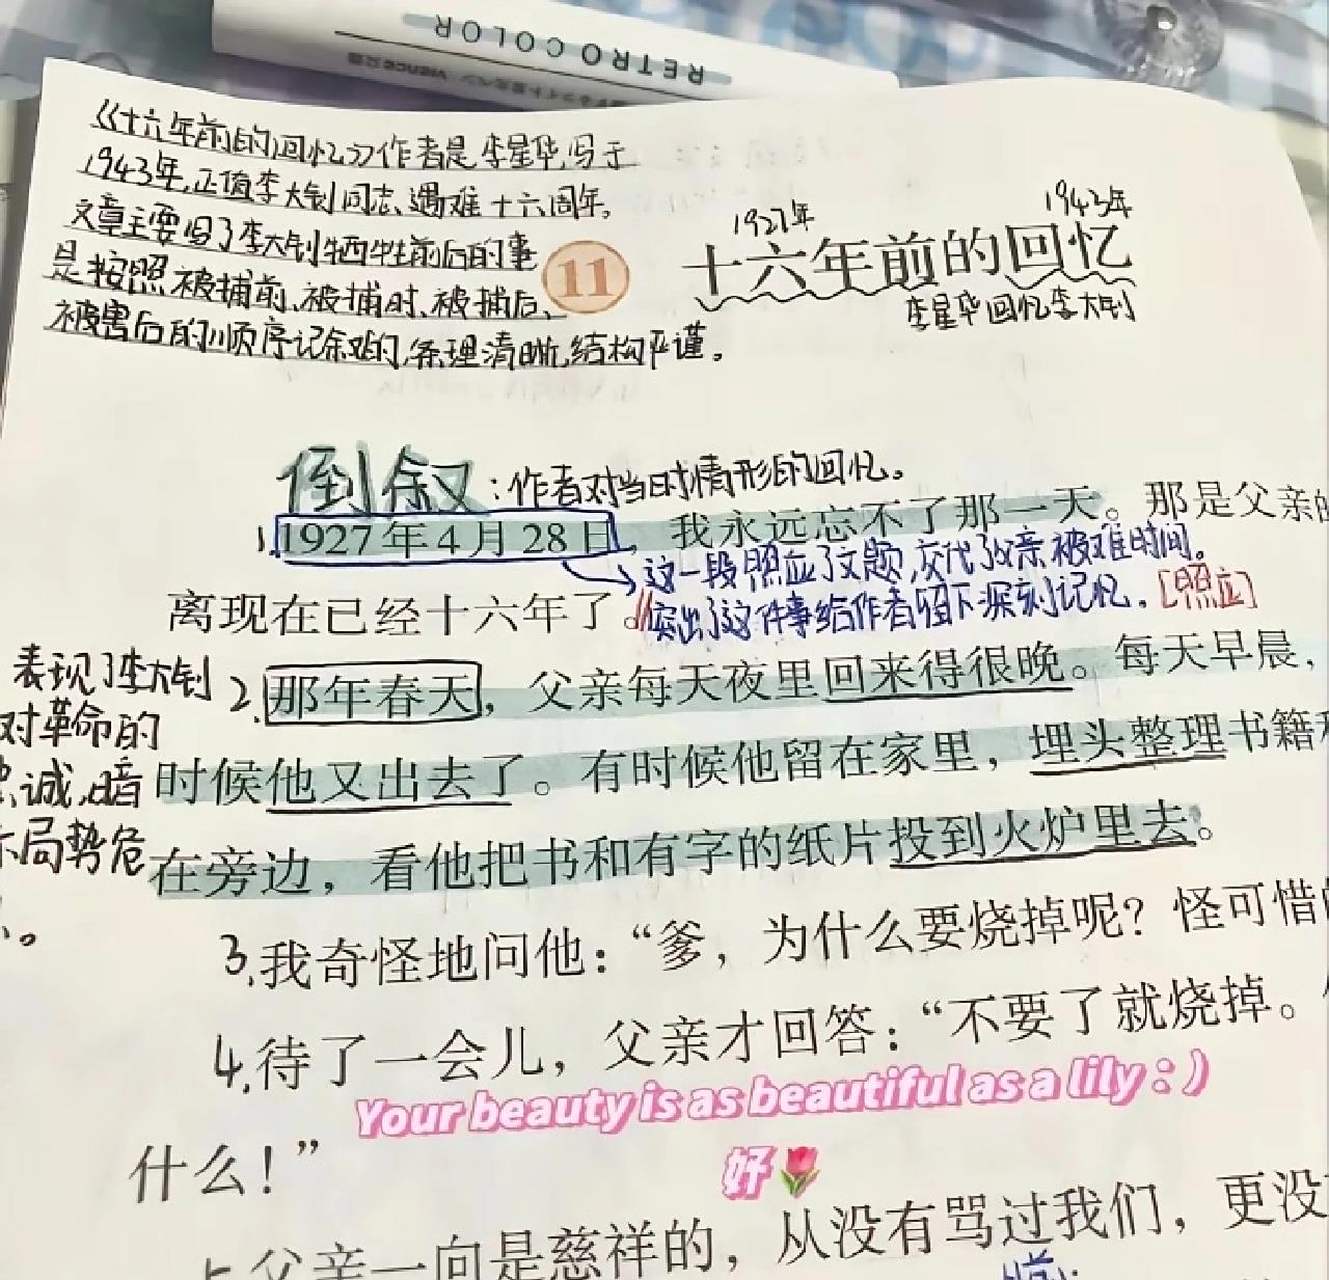 RETRO COLOR
《十六年前的回忆》作者是李星华,写于
1943年,正值李大钊同志遇难十六周年。
文章主要写了李大钊牺牲前后的事
是按照被捕前、被捕时、被捕后、
被害后的顺序记叙的,条理清晰,结构严谨。
1927年
1943年
11
十六年前的回忆
李星华回忆李大钊
倒叙:作者对当时情形的回忆。
1.1927年4月28日,我永远忘不了那一天。那是父亲的
这一段照应了文题,交代了父亲被难时间。
离现在已经十六年了。
突出了这件事给作者留下深刻记忆。[照应]
表现了李大钊
对革命的
忠诚,暗
示局势危
2.那年春天,父亲每天夜里回来得很晚。每天早晨,
时候他又出去了。有时候他留在家里,埋头整理书籍和
在旁边,看他把书和有字的纸片投到火炉里去。
3.我奇怪地问他:“爹,为什么要烧掉呢?怪可惜的
4.待了一会儿,父亲才回答:“不要了就烧掉。
Your beauty is as beautiful as a lily : )
什么!”
好🌷
父亲一向是慈祥的,从没有骂过我们,更没